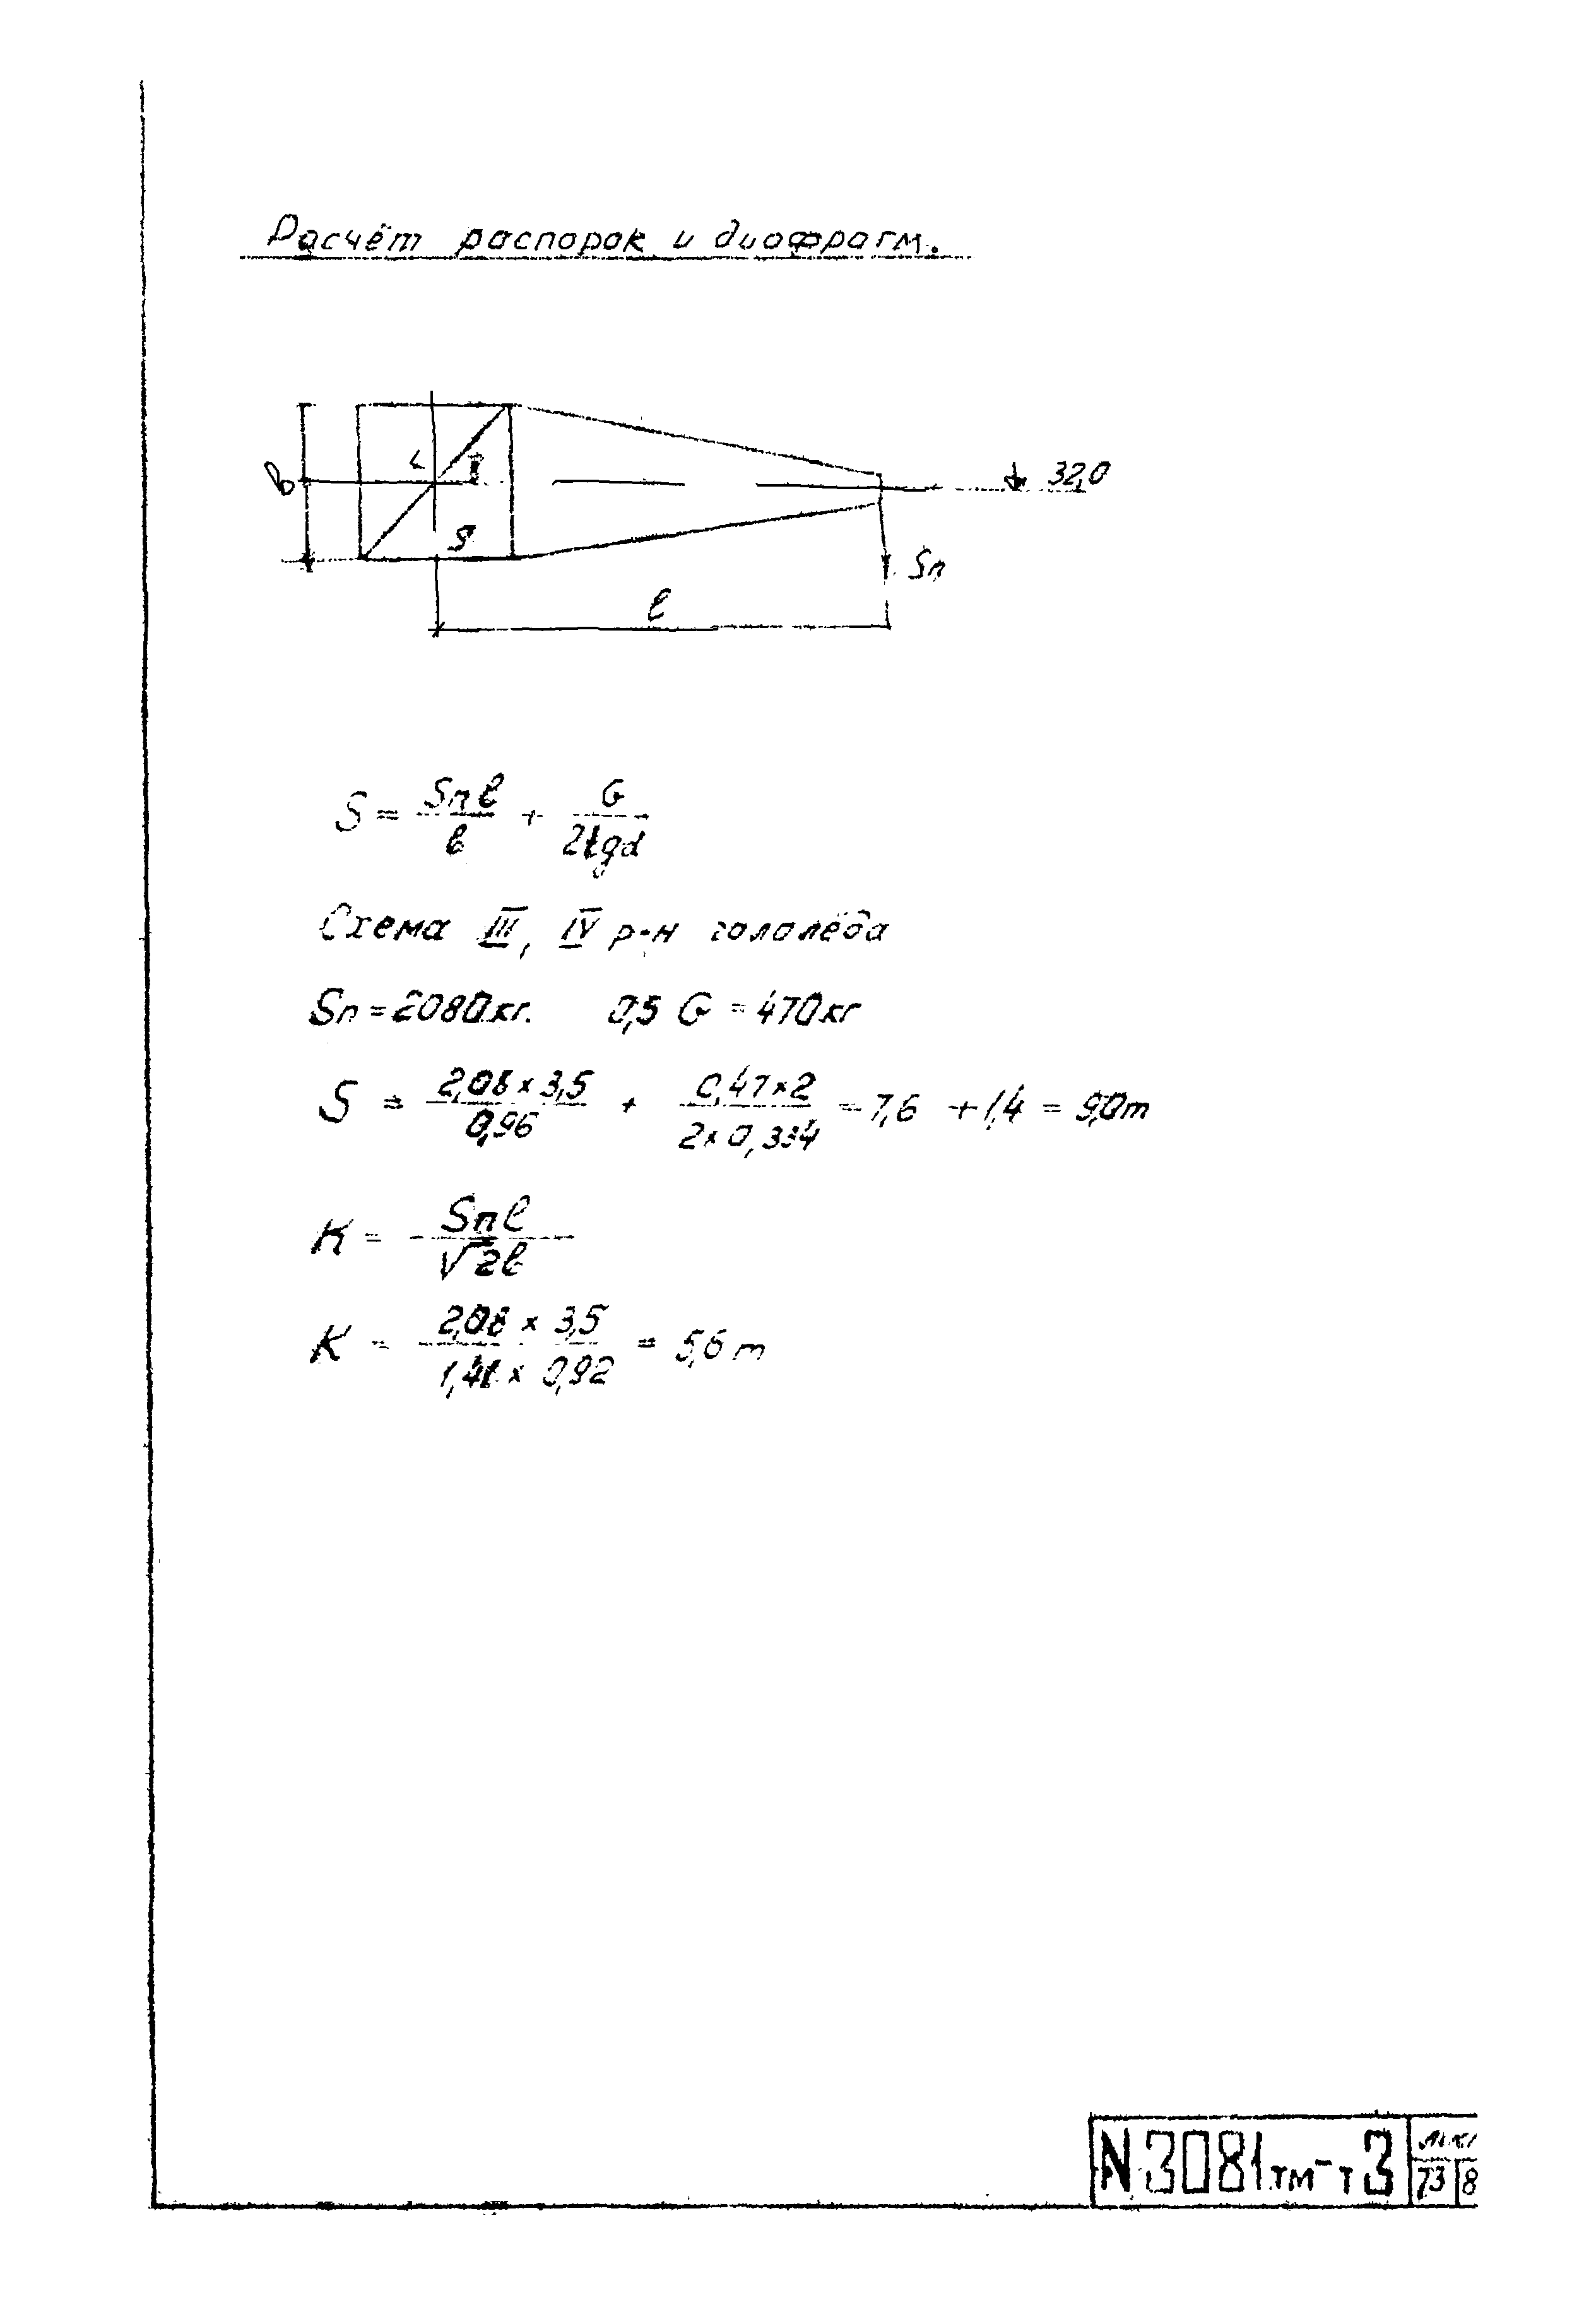 Расчёт распорок и диафрагм.
b
S
32,0
Sп
l
S = Sп l / b + G / 2tgα
Схема III, IV р-н гололёда
Sп = 2080кг. 0,5 G = 470кг
S = 2,08 × 3,5 / 0,96 + 0,47 × 2 / 2 × 0,334 = 7,6 + 1,4 = 9,0т
K = Sп l / √2 b
K = 2,08 × 3,5 / 1,41 × 0,92 = 5,6 т
N3081тм-т3
73 8